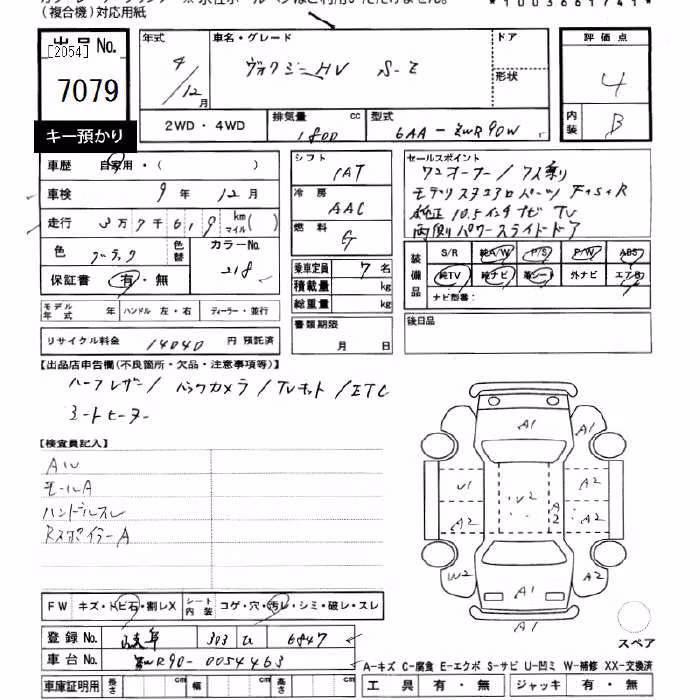 (複合機)対応用紙
出品No.
[2054]
7079
キー預かり
年式
4/12月
車名・グレード
ヴォクシーHV S-Z
ドア
形状
評価点
4
内装
B
2WD・4WD
排気量
1800
cc
型式
6AA-ZWR90W
車歴 自家用・( )
車検 9年12月
走行 3万7千619 km マイル( )
色 ブラック
色替
カラーNo.
218
保証書 有・無
モデル年式 年 ハンドル 左・右 ディーラー・並行
リサイクル料金 14040 円預託済
シフト
1AT
冷房
AAC
燃料
G
乗車定員 7名
積載量 kg
総重量 kg
書類期限
月 日
セールスポイント
ワンオーナー/7人乗り
モデリスタエアロパーツ F+S+R
純正10.5インチナビ TV
両側パワースライドドア
装備品
S/R 純A/W P/S P/W ABS
純TV 純ナビ 革シート 外ナビ エアB
ナビ型番:
後日品
【出品店申告欄(不良箇所・欠品・注意事項等)】
ハーフレザー/バックカメラ/TVキット/ETC
シートヒーター
【検査員記入】
AW
モールA
ハンドルスレ
RスポイラーA
A1
A1
U1
A2
U2
A2
A2
A2
A2
W2
A2
A1
A1
スペア
FW キズ・トビ石・割レX シート内装 コゲ・穴・汚レ・シミ・破レ・スレ
登録No. 岐阜 303 ひ 6847
車台No. ZWR90-0054463
A-キズ C-腐食 E-エクボ S-サビ U-凹ミ W-補修 XX-交換済
車庫証明用 長さ cm 幅 cm 高さ cm
工具 有・無 ジャッキ 有・無